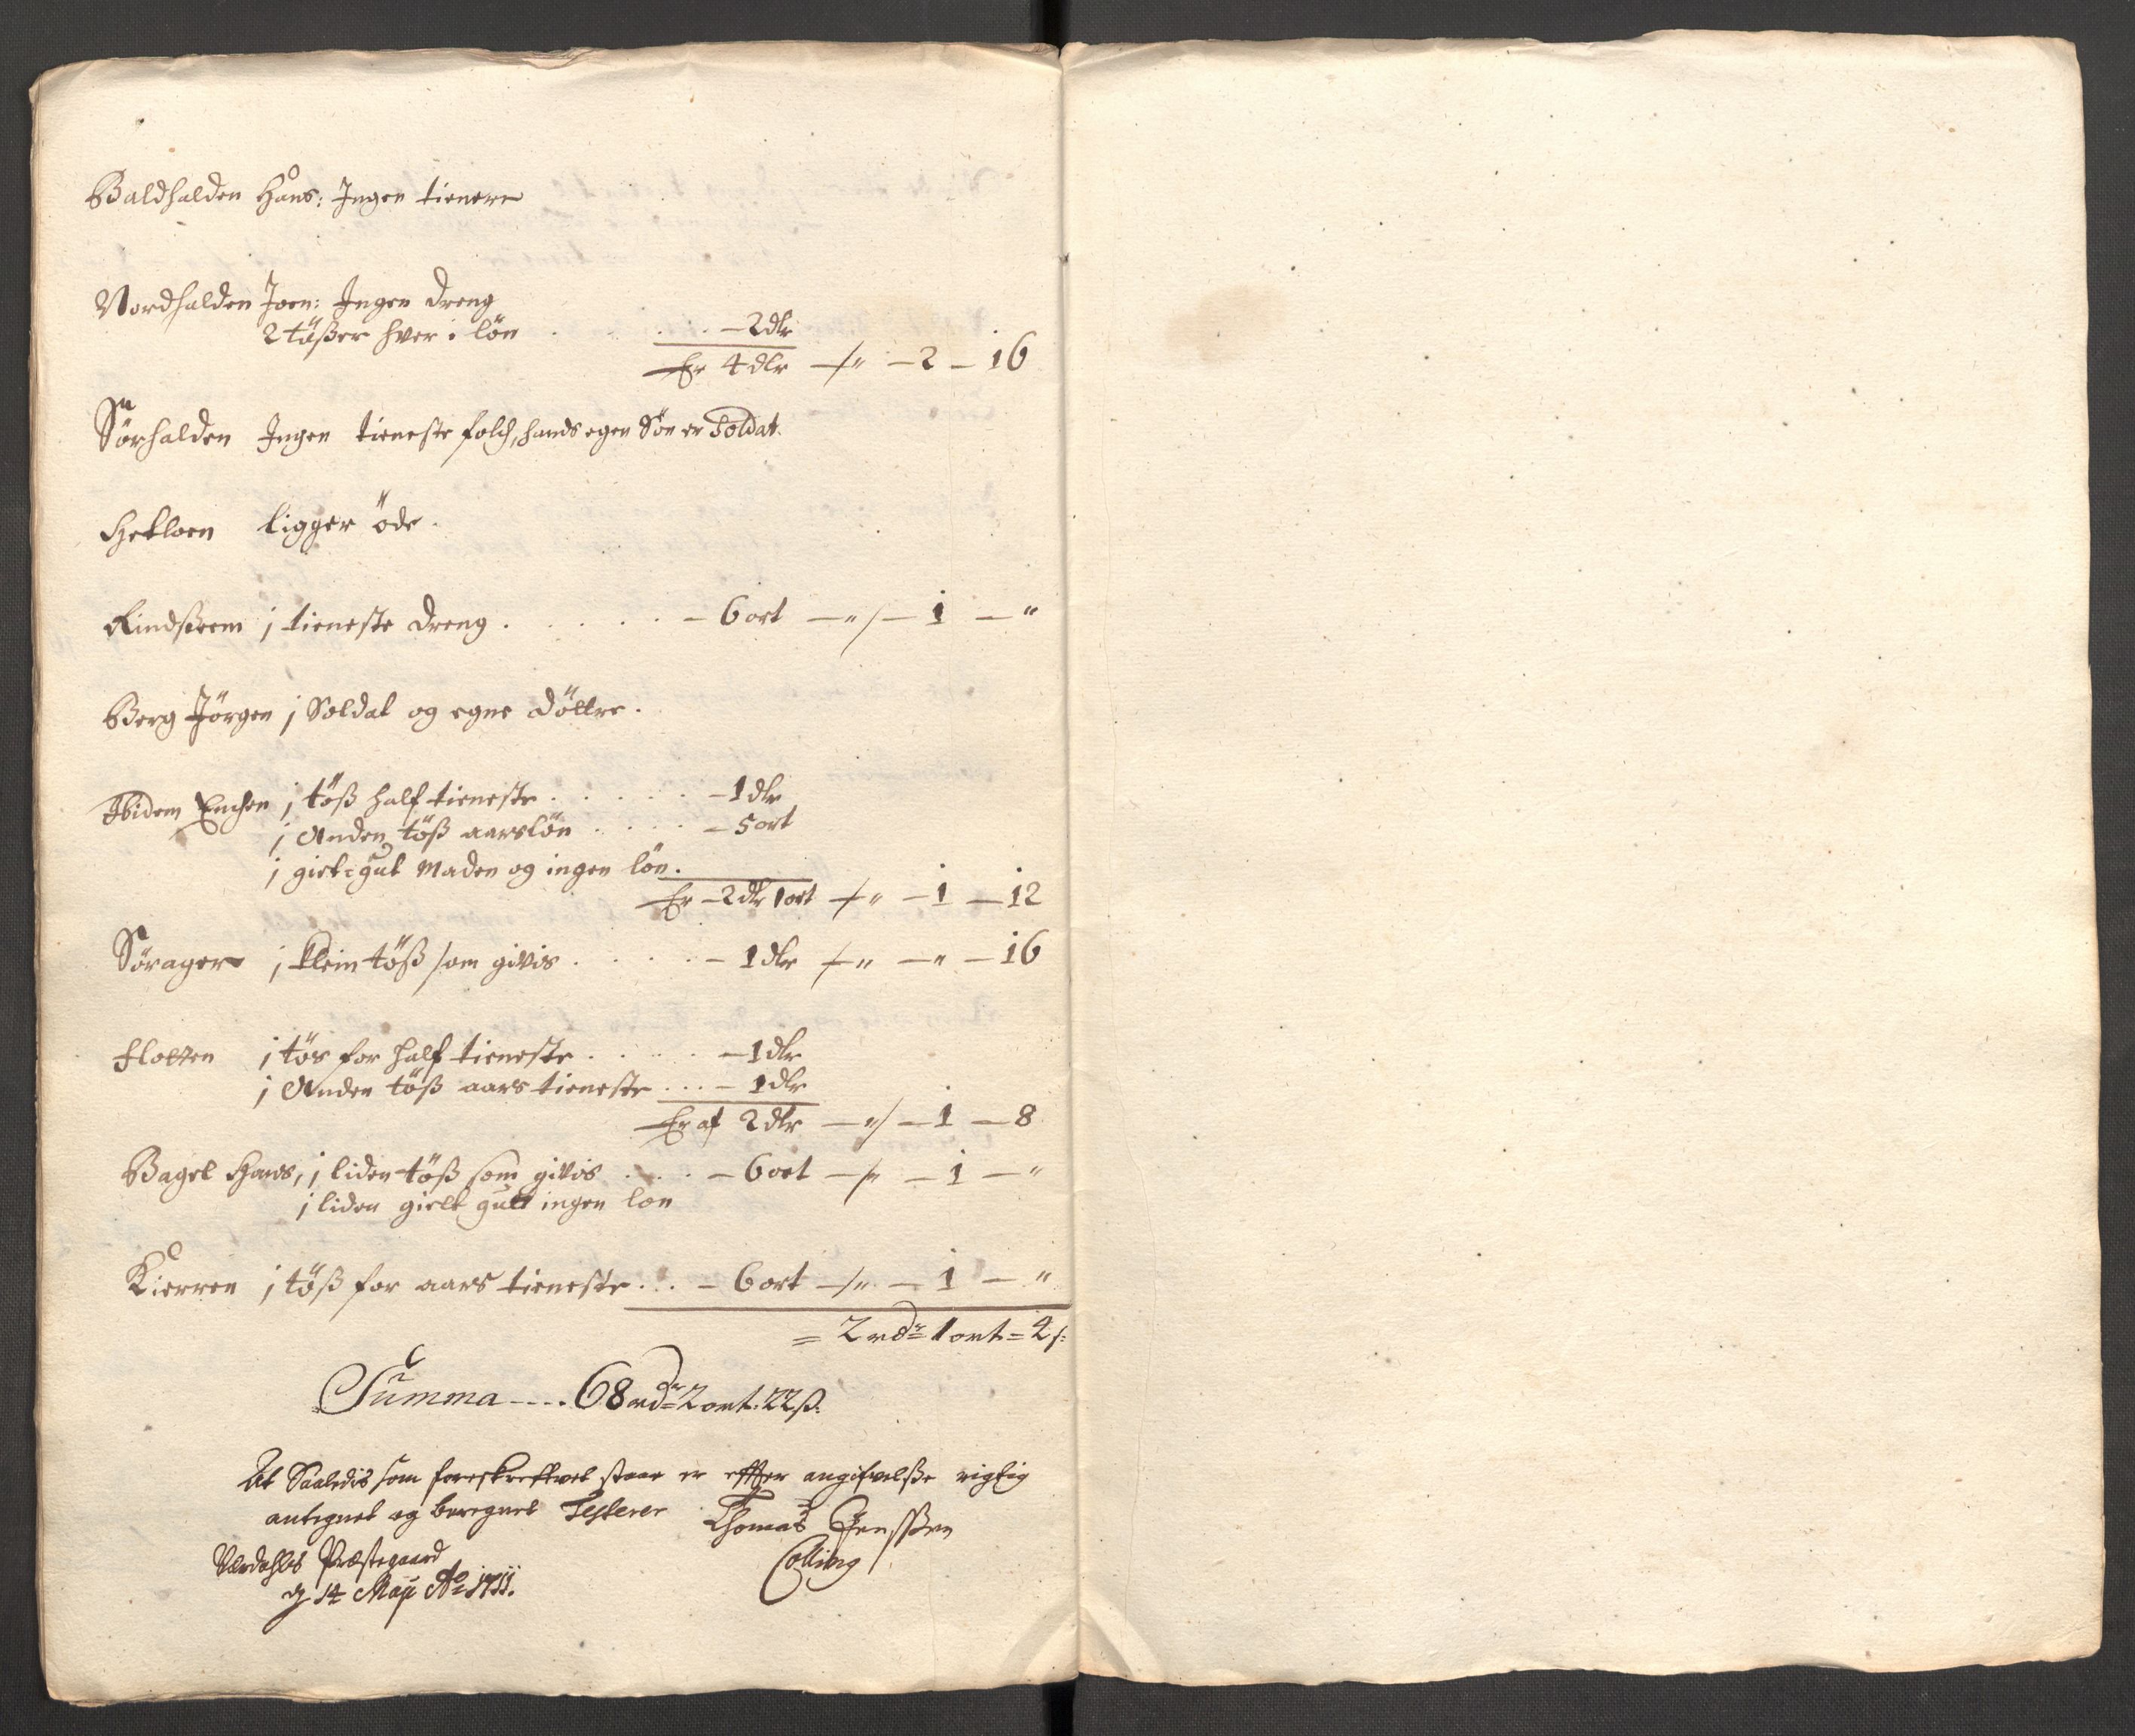 Baldhalden Hans: Ingen tienere
Nordhalden Joen: Ingen dreng
2 tösser hver i lön . . . . . – 2 dlr
Er 4 dlr –/„ – 2 – 16
Sörhalden Ingen tieneste folch, hands egen Sön er Soldat.
Hekloen ligger öde.
Rindsteem j tieneste dreng . . . . . – 6 ort – „ / – 1 – „
Berg Jörgen j Soldat og egne döttre.
Ibidem j töß half tieneste . . . . . – 1 dlr
j Anden töß aarslön . . . . – 5 ort
j giet=gut Maden og ingen lön.
Er – 2 dlr 1 ort –/„ – 1 – 12
Sörager j klein töß som givis . . . . – 1 dlr –/„ – „ – 16
Flotten j tös for half tieneste . . . . – 1 dlr
j Anden töß aars tieneste . . . – 1 dlr
Er af 2 dlr – „/ – 1 – 8
Bagel Hans, j liden töß som givis . . . – 6 ort –/„ – 1 – „
j liden giett gutt ingen lon
Kierren j töß for aars tieneste . . . – 6 ort –/„ – 1 – „
= 2 rdr 1 ort = 4 s:
Summa - - - . 68 rdr 2 ort. 22 ß:
At Saaledis som foreskreffvet staar er effter angifvelsse rigtig
antegnet og beregnet Testerer Thomas Jenssen
Collin
Værdahls Præstegaard
d 14 Maji Ao 1711.